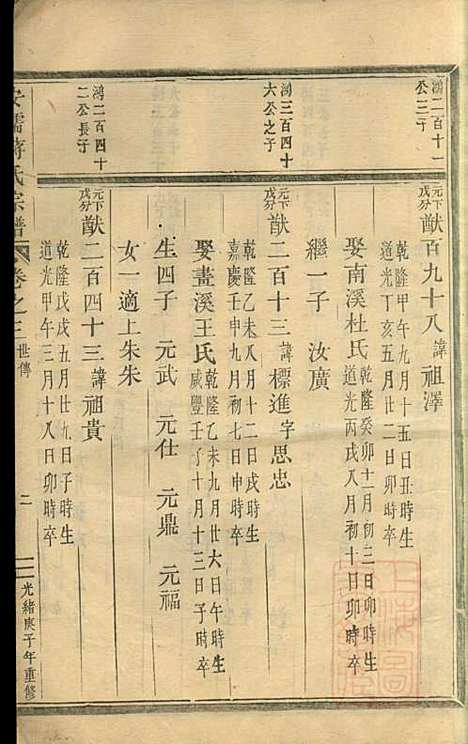 鴻二百十一
公三子
元下
戊分 猷百九十八 諱 祖澤
乾隆甲午九月十五日丑時生
道光丁亥五月廿二日卯時卒
娶南溪杜氏 乾隆癸卯十一月初三日卯時生
道光丙戌八月初十日卯時卒
繼一子 汝廣
鴻三百四十
六公之子
元下
戊分 猷二百十三 諱 標進 字 思忠
乾隆乙未八月十二日戌時生
嘉慶壬申九月初七日申時卒
娶畫溪王氏 乾隆乙未九月廿六日午時生
咸豐壬子十月十三日子時卒
生四子 元武 元仕 元鼎 元福
女一適上朱朱
鴻二百四十
二公長子
元下
戊分 猷二百四十三 諱 祖貴
乾隆戊戌五月廿九日子時生
道光甲午三月十八日卯時卒
儒蔣氏宗譜 卷之三 世傳 二 光緒庚子年重修